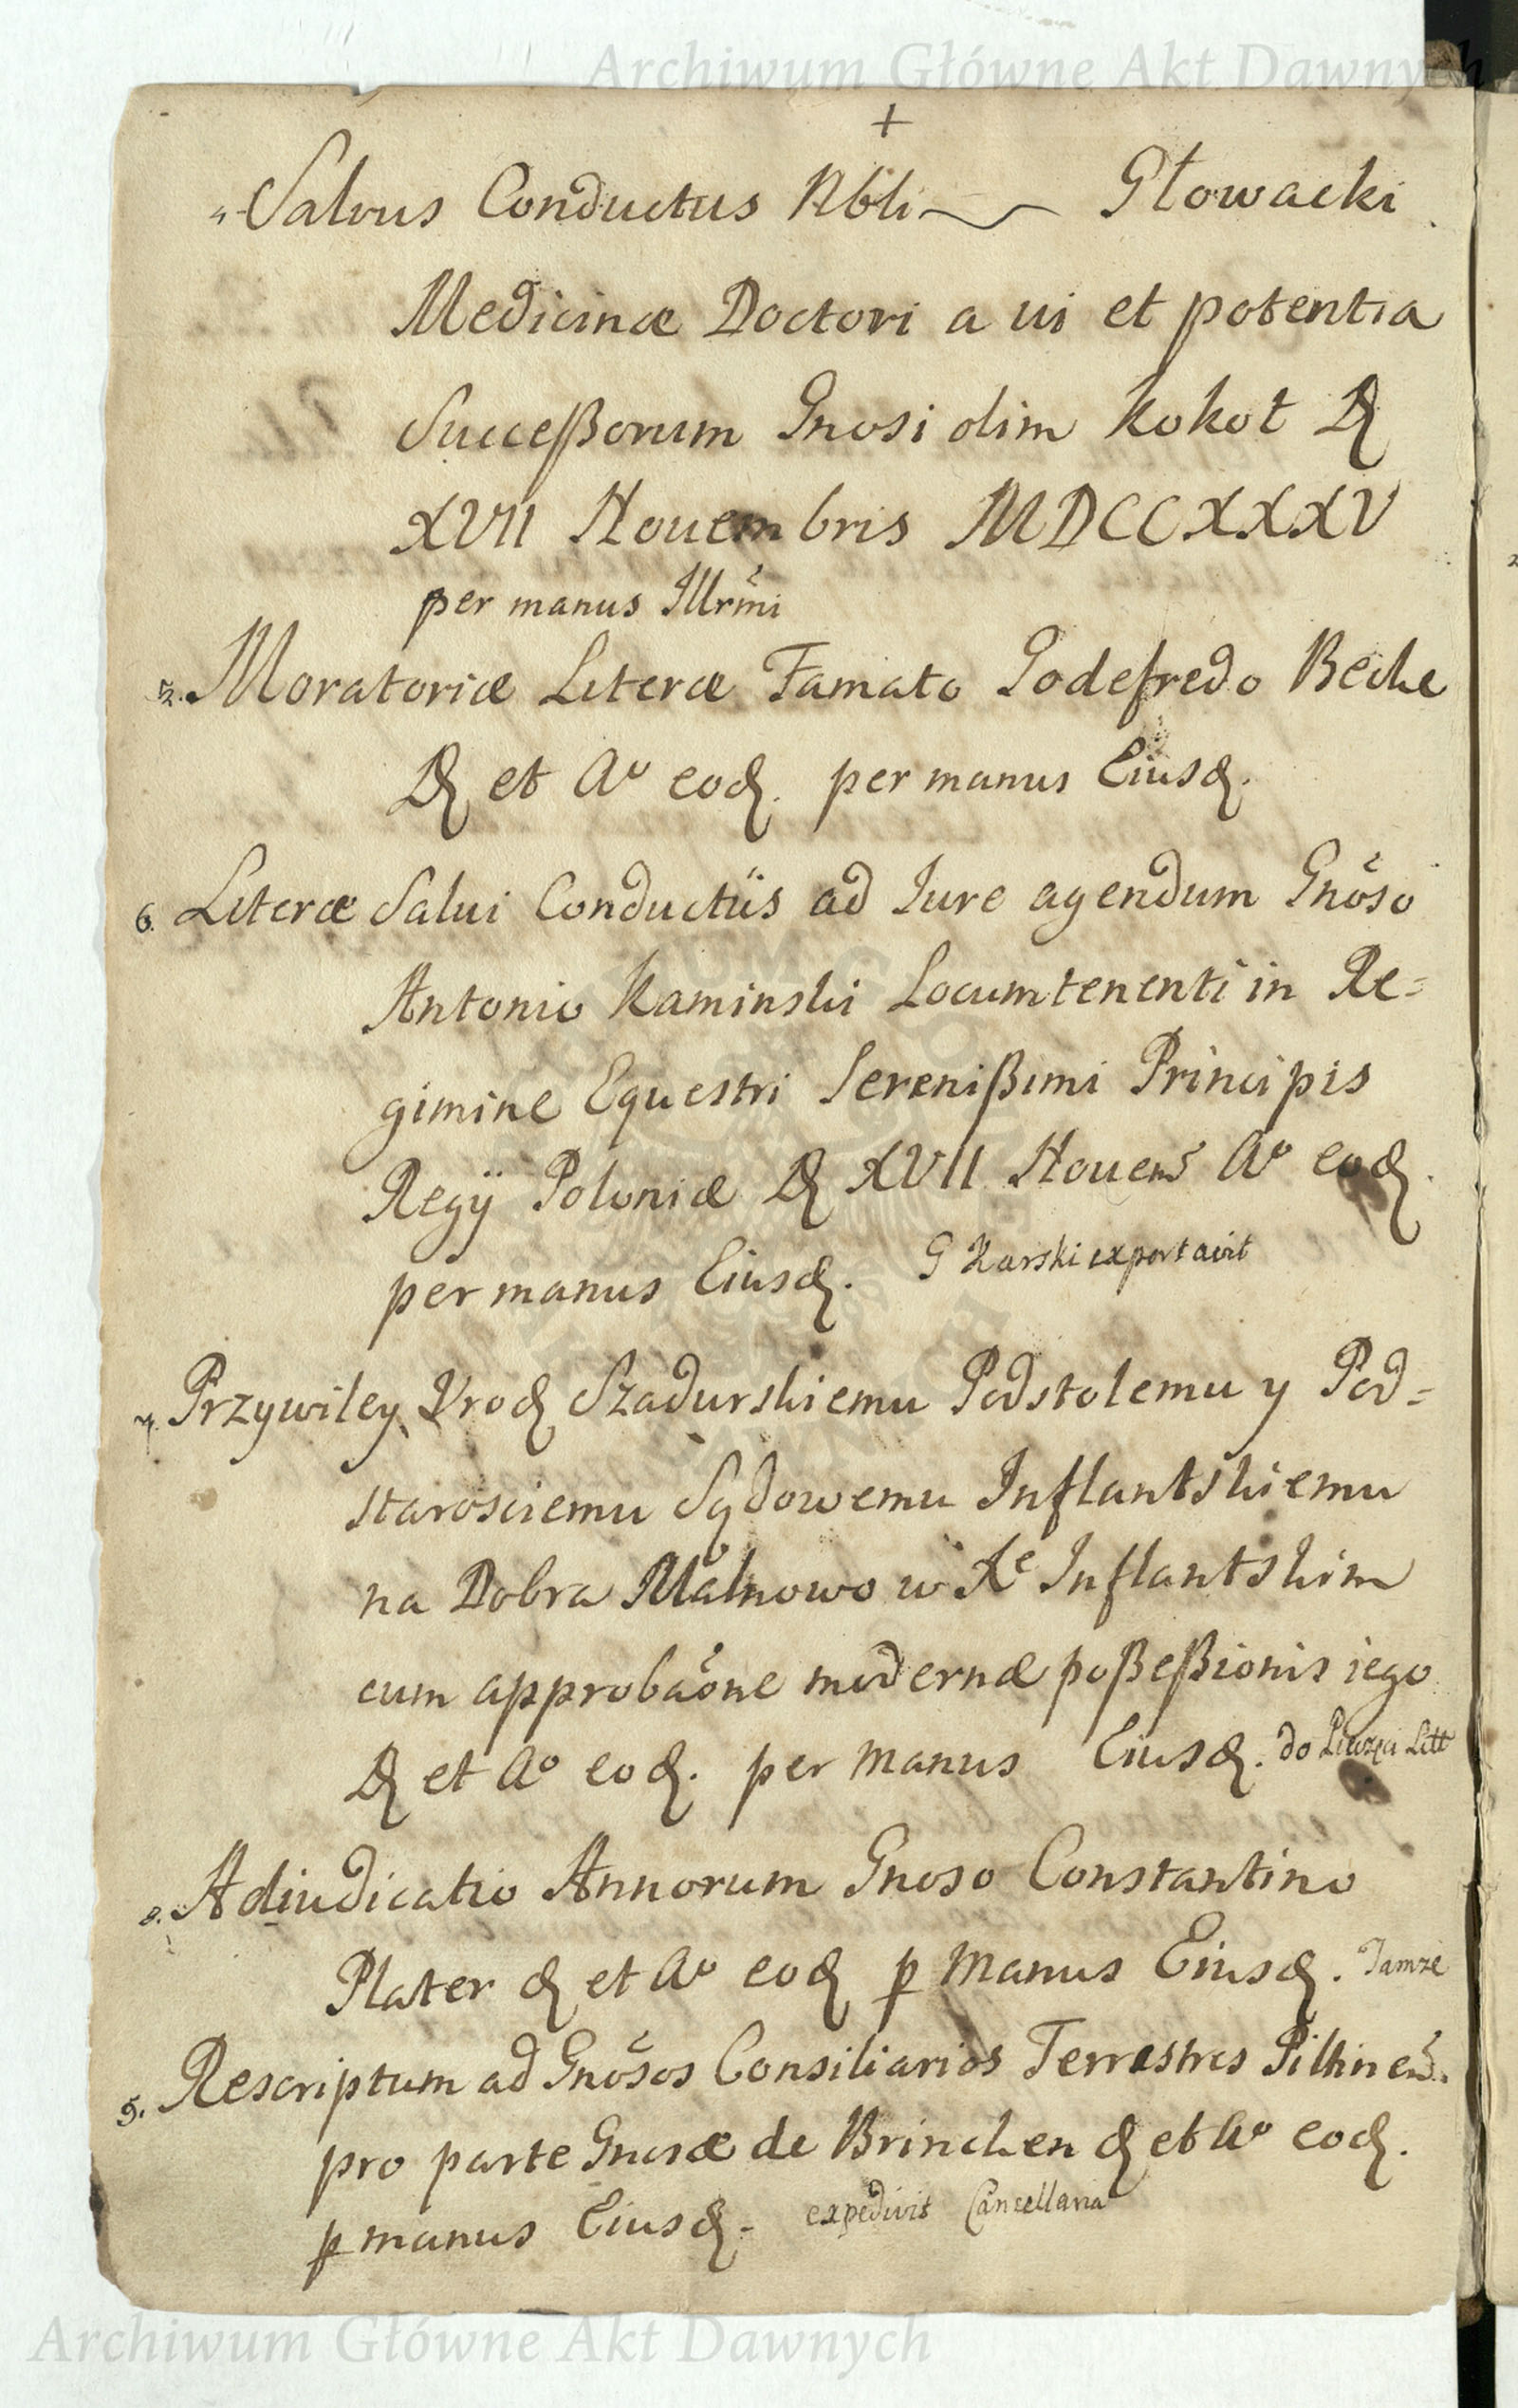 Archiwum Główne Akt Dawnych
+
4. Salvus Conductus Nbli Głowacki
Medicinæ Doctori a ui et potentia
Succeßorum Gnosi olim Kokot D
XVII Nouembris MDCCXXXV
per manus Illrmi
5. Moratoriæ Literæ Famato Godefredo Beche
D et A° eod. per manus Eiusd.
6. Literæ Salui Conductus ad Iure agendum Gnoso
Antonio Kaminski Locumtenenti in Re=
gimine Equestri Serenißimi Principis
Regÿ Poloniæ D XVII Nouem A° eod.
per manus Eiusd. G Karski exportavit
7. Przywiley Vrod Szadurskiemu Podstolemu y Pod=
starosciemu Sądowemu Inflantskiemu
na Dobra Malnowo w Xe Inflantskim
cum approbaone modernæ poßeßionis iego
D et A° eod. per manus Eiusd. do Litt
8. Adiudicatio Annorum Gnoso Constantino
Plater d et A° eod p manus Eiusd. Tamże
9. Rescriptum ad Gnosos Consiliarios Terrestres Piltinen.
pro parte Gnosæ de Brincken d et A° eod.
p manus Eiusd. expedivit Cancellaria
Archiwum Główne Akt Dawnych